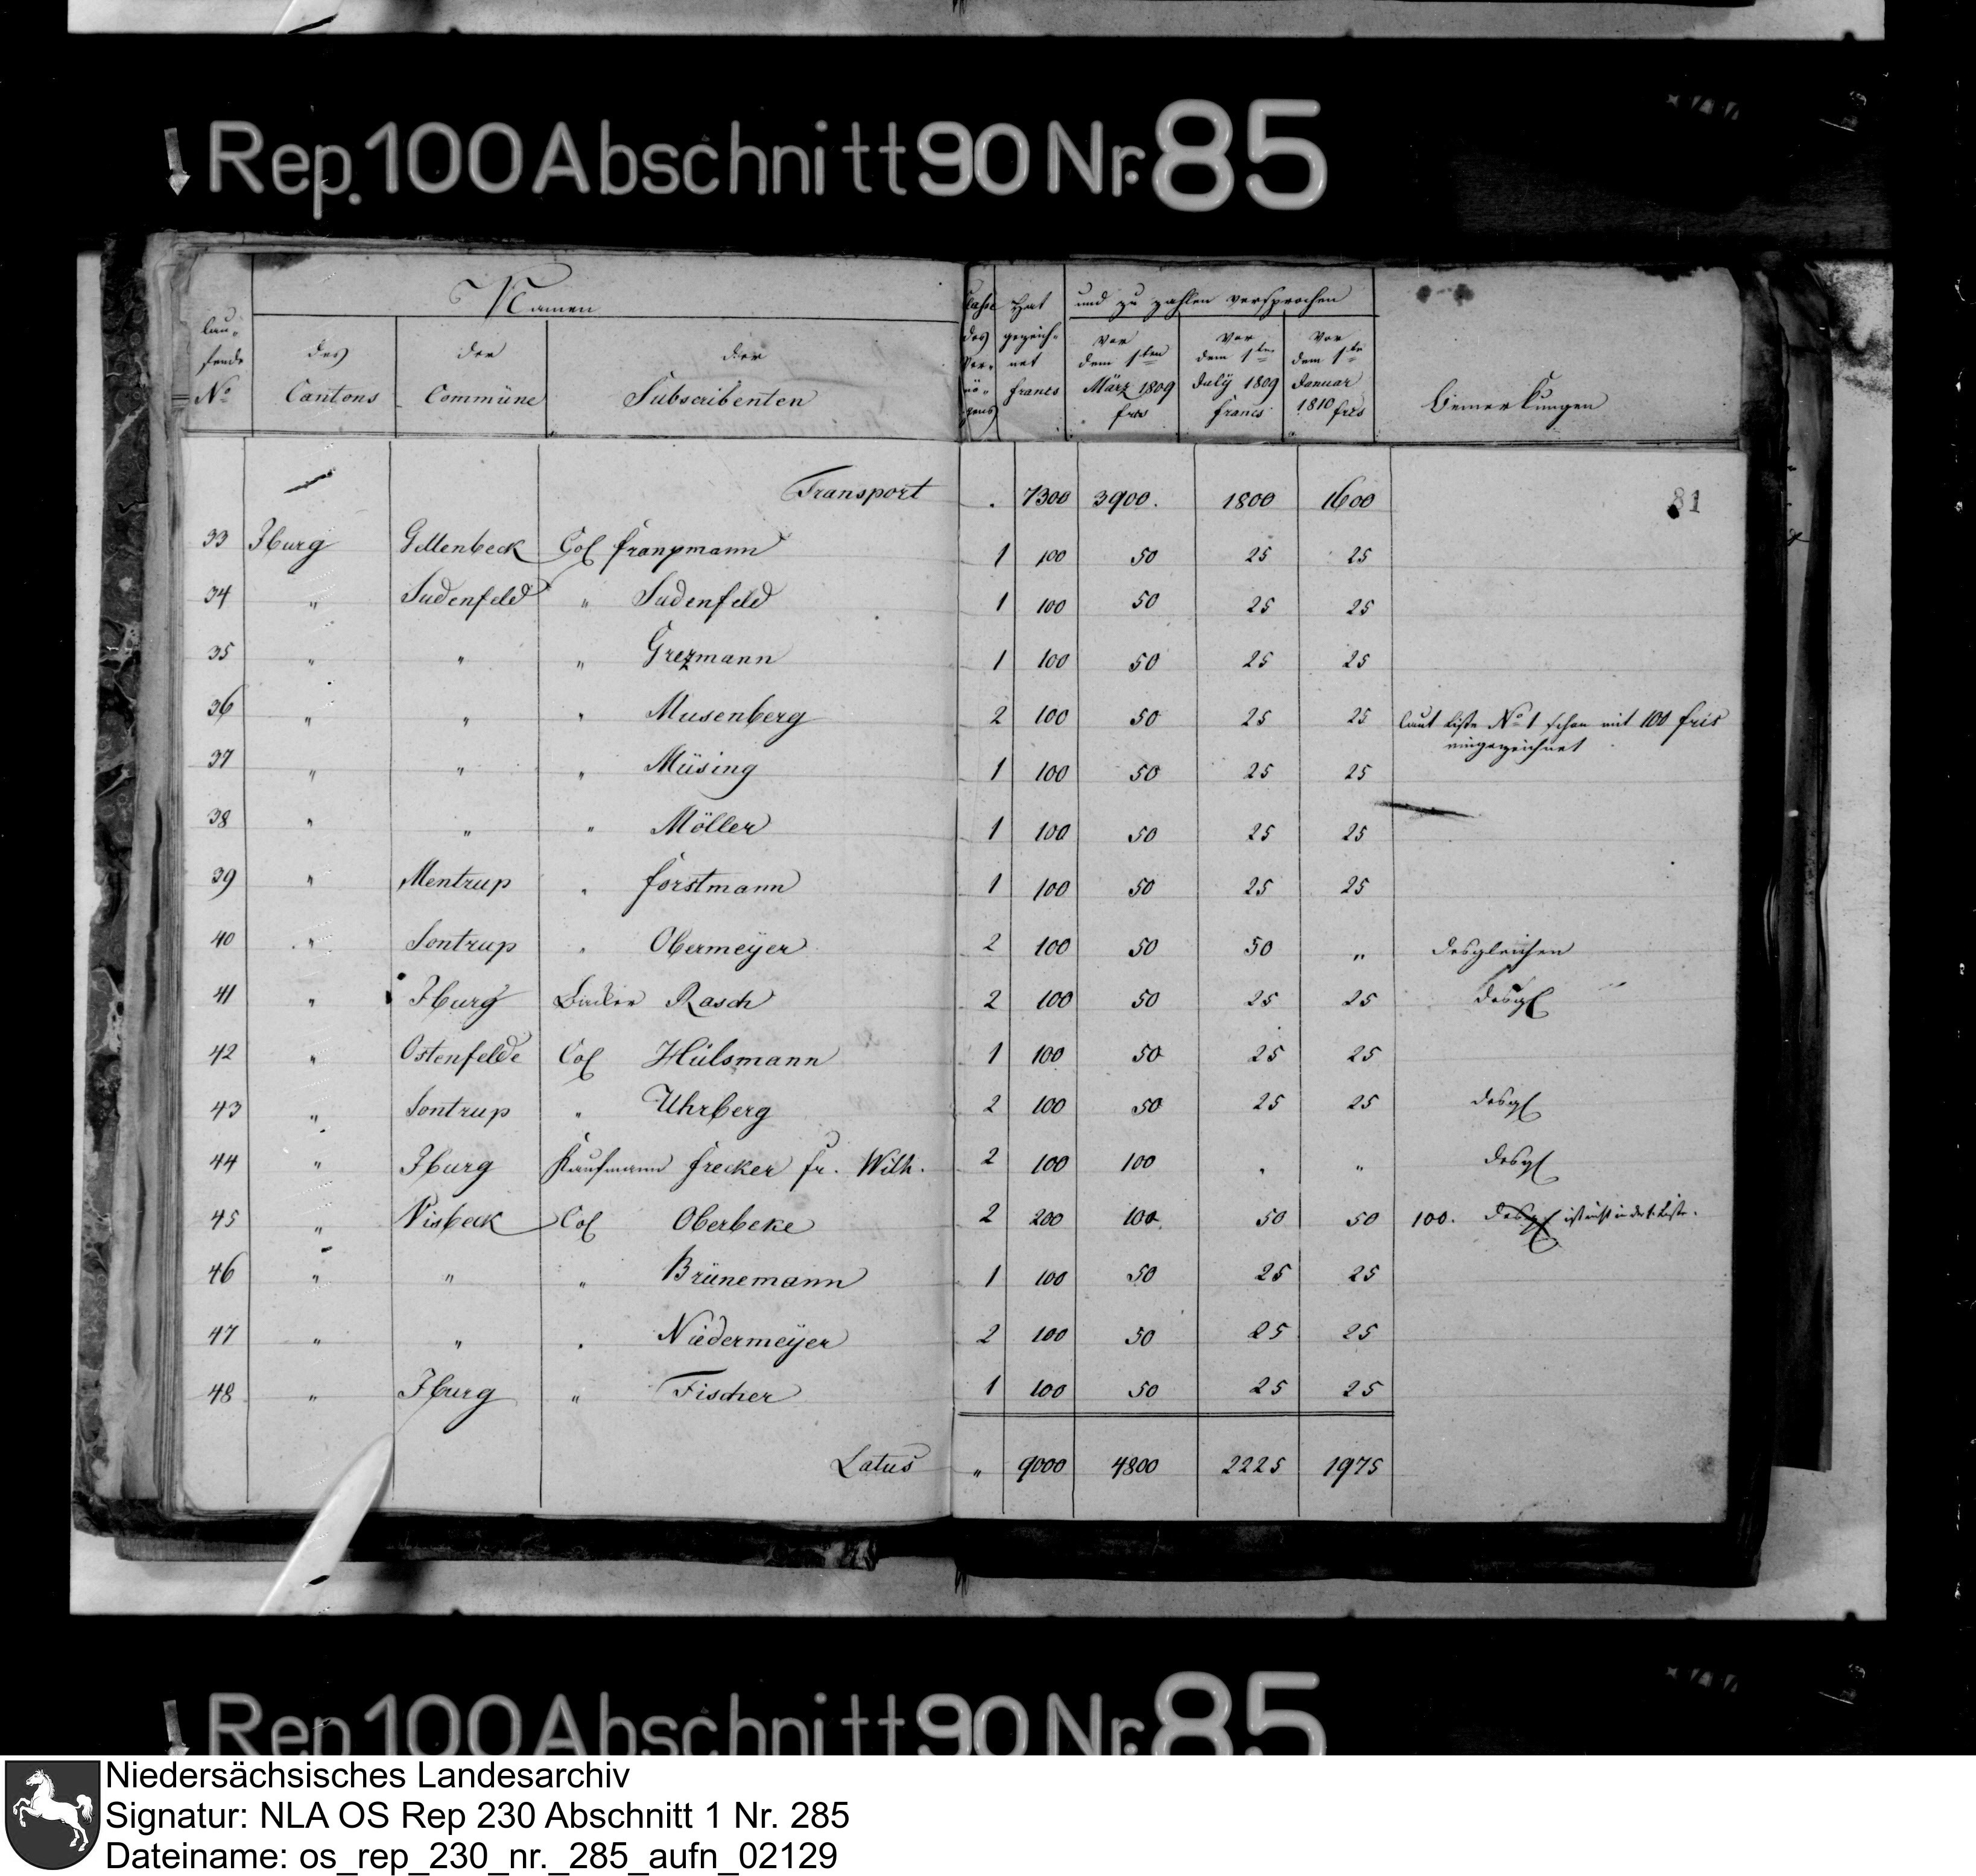 Rep. 100 Abschnitt 90 Nr. 85
Namen
und zu zahlen versprochen
lau-
fende
No
des
Cantons
der
Commüne
der
Subscribenten
Classe
des
Ver-
mö-
gens
Hat
gezeich-
net
francs
vor
dem 1sten
März 1809
frcs
vor
dem 1ten
July 1809
francs
vor
dem 1te
Januar
1810 frcs
Bemerkungen
81
Transport . 7300 3900. 1800 1600
33 Iburg Gellenbeck Col 1 100 50 25 25
34 " Sudenfeld " Sudenfeld 1 100 50 25 25
35 " " " Grezmann 1 100 50 25 25
36 " " " Musenberg 2 100 50 25 25 laut Liste No 1 schon mit 100 frcs
eingezeichnet
37 " " " Müsing 1 100 50 25 25
38 " " " Möller 1 100 50 25 25
39 " Mentrup " Forstmann 1 100 50 25 25
40 " Sentrup " Obermeÿer 2 100 50 50 " desgleichen
41 " Iburg Rasch 2 100 50 25 25 desgl
42 " Ostenfelde Col Hülsmann 1 100 50 25 25
43 " Sentrup " Uhrberg 2 100 50 25 25 desgl
44 " Iburg Kaufmann Frecker Fr. Wilh. 2 100 100 " " desgl
45 " Visbeck Col Oberbeke 2 200 100 50 50 100. desgl ist nicht in der 1. Liste.
46 " " " Brünemann 1 100 50 25 25
47 " " " Niedermeÿer 2 100 50 25 25
48 " Iburg " Fischer 1 100 50 25 25
Latus " 9000 4800 2225 1975
Rep. 100 Abschnitt 90 Nr. 85
Niedersächsisches Landesarchiv
Signatur: NLA OS Rep 230 Abschnitt 1 Nr. 285
Dateiname: os_rep_230_nr._285_aufn_02129